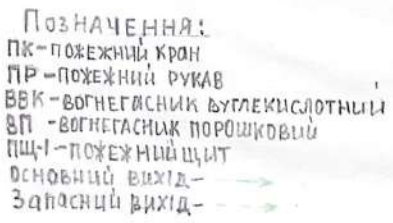 Позначення:
ПК-пожежний кран
ПР-пожежний рукав
ВВК-вогнегасник вуглекислотний
ВП -вогнегасник порошковий
ПЩ-1-пожежний щит
основний вихід-
Запасний вихід-